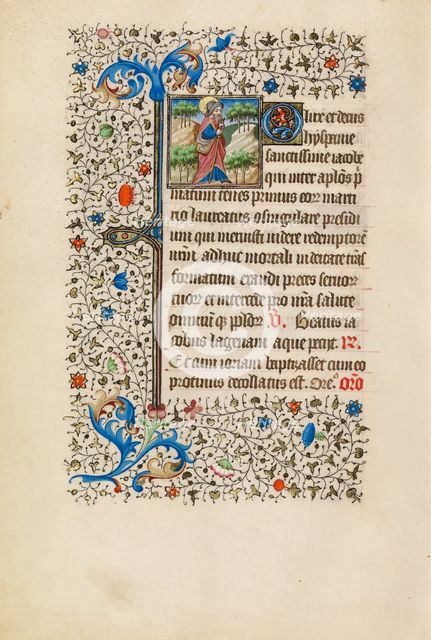 O lux et decus
hyspanie
sanctissime iacobe
qui inter aplos p
matum tenes primus eorr marti
rio laureatus o singulare presidi
um qui meruisti videre redemptore
nrm adhuc mortali in deitate tras
formatum exaudi preces seruor
tuor et intercede pro nra salute
omnium q plor V. Beatus ia
cobus lagenam aque pecijt R.
Et cum ioriam baptrasset cum eo
protinus decollatus est. Ore. oro